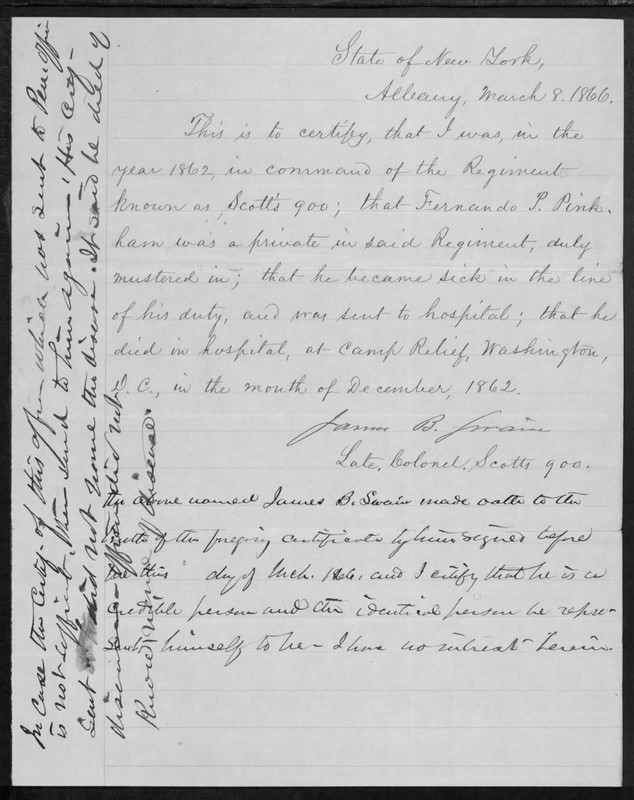 State of New York,
Albany, March 8. 1866.
This is to certify, that I was, in the
year 1862, in command of the Regiment
known as Scott's 900; that Fernando P. Pink-
ham was a private in said Regiment, duly
mustered in; that he became sick in the line
of his duty, and was sent to hospital; that he
died in hospital, at Camp Relief, Washington,
D. C., in the month of December, 1862.
James B. Swain
Late, Colonel, Scotts 900.
the above named James B. Swain made oath to the
truth of the foregoing certificate by him signed before
me this day of Mch. 1866. and I certify that he is a
credible person and the identical person he repre-
sents himself to be - I have no interest herein.
In case the Certf. of this offr. which was sent to Pen. Office
is not sufficient, then send to him again. His Certf.
sent did not name the disease. It said he died of
disease - Offr. did not
know name of disease.